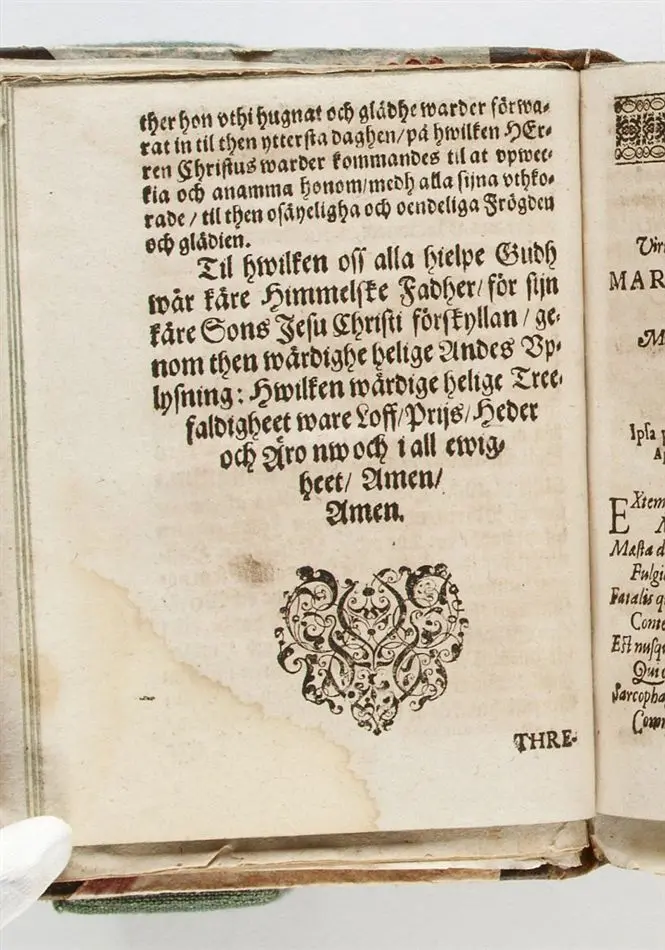 ther hon vthi hugnat och glädhe warder förwa-
rat in til then yttersta daghen/ på hwilken HEr-
ren Christus warder kommandes til at vpwec-
kia och anamma honom/ medh alla sijna vthko-
rade/ til then osäyeligha och oendeliga Frögden
och glädien.
Til hwilken oss alla hielpe Gudh
wår käre Himmelske Fadher/ för sijn
käre Sons Jesu Christi förskyllan/ ge-
nom then wärdighe helige Andes Vp-
lysning: Hwilken wärdige helige Tree-
faldigheet ware Loff/ Prijs/ Heder
och Äro nw och i all ewig-
heet/ Amen/
Amen.
THRE-
Vir
MAR
M
Ipsa
E Xtem
Mæsta d
Fulgi
Fatalis q
Conte
Est nusq
Qui
Sarcopha